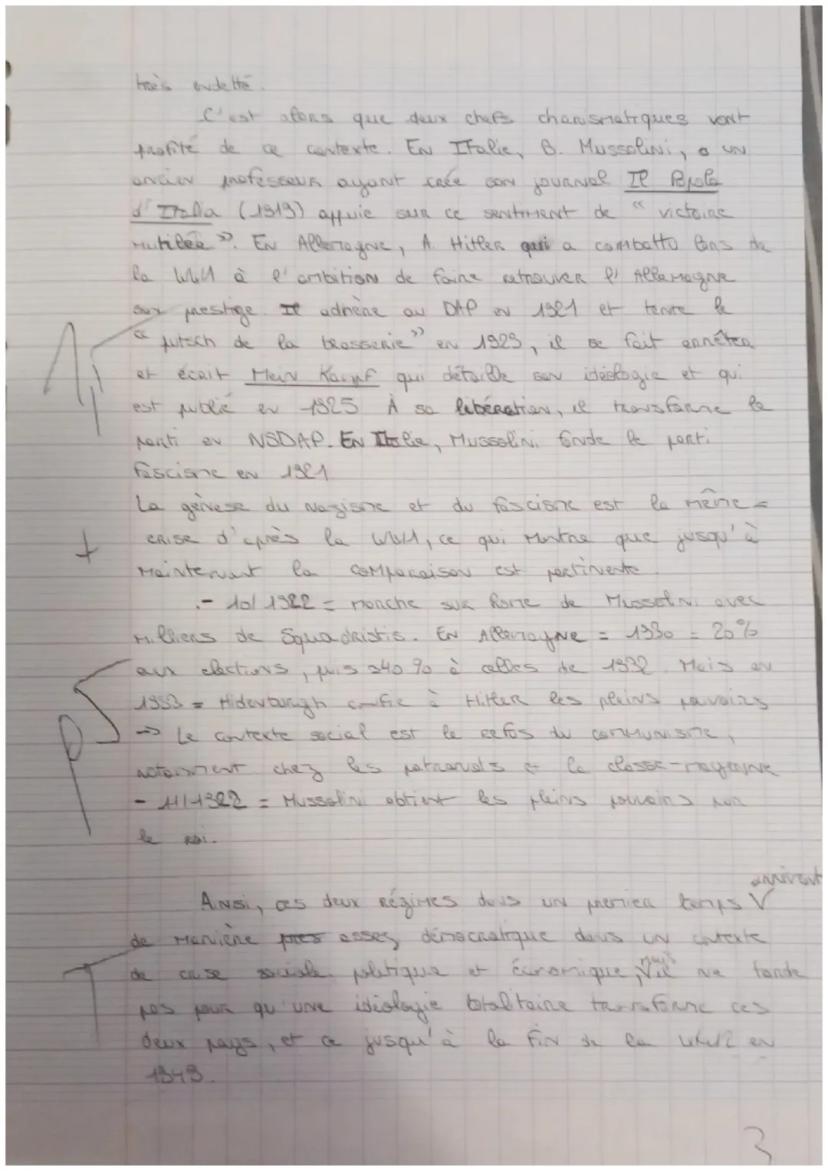 très endetté.
C'est alors que deux chefs charismatiques vont
profité de ce contexte. EN Italie, B. Mussolini, a un
ancien professeur ayant créé son journal Il Popolo
d'Italia (1919) appuie sur ce sentiment de "victoire
mutilée". EN Allemagne, A. Hitler qui a combattu lors de
la WW1 à l'ambition de faire retrouver l'Allemagne
son prestige. Il adhère au DAP en 1921 et tente le
"putsch de la brasserie" en 1923, il se fait arrêter
et écrit Mein Kampf qui détaille son idéologie et qui
est publié en 1925 À sa libération, il transforme le
parti en NSDAP. EN Italie, Mussolini fonde le parti
fasciste en 1921
La génèse du nazisme et du fascisme est la même =
crise d'après la WW1, ce qui montre que jusqu'à
+ maintenant la comparaison est pertinente
.- 10/1922 = marche sur Rome de Mussolini avec
milliers de Squadristis. EN Allemagne = 1930 = 20%
aux élections, puis 40% à celles de 1932. Mais en
1933 = Hidenburgh confie à Hitler les pleins pouvoirs
→ Le contexte social est le refus du communisme,
notamment chez les patronats & la classe-moyenne
- 11/1922 = Mussolini obtient les pleins pouvoirs par
le roi.
arrivent
Ainsi, ces deux régimes dans un premier temps V
de manière assez démocratique dans un contexte
de crise sociale politique et économique, mais il ne tarde
pas pour qu'une idéologie totalitaire transforme ces
deux pays, et ce jusqu'à la fin de la WW2 en
1945.
3